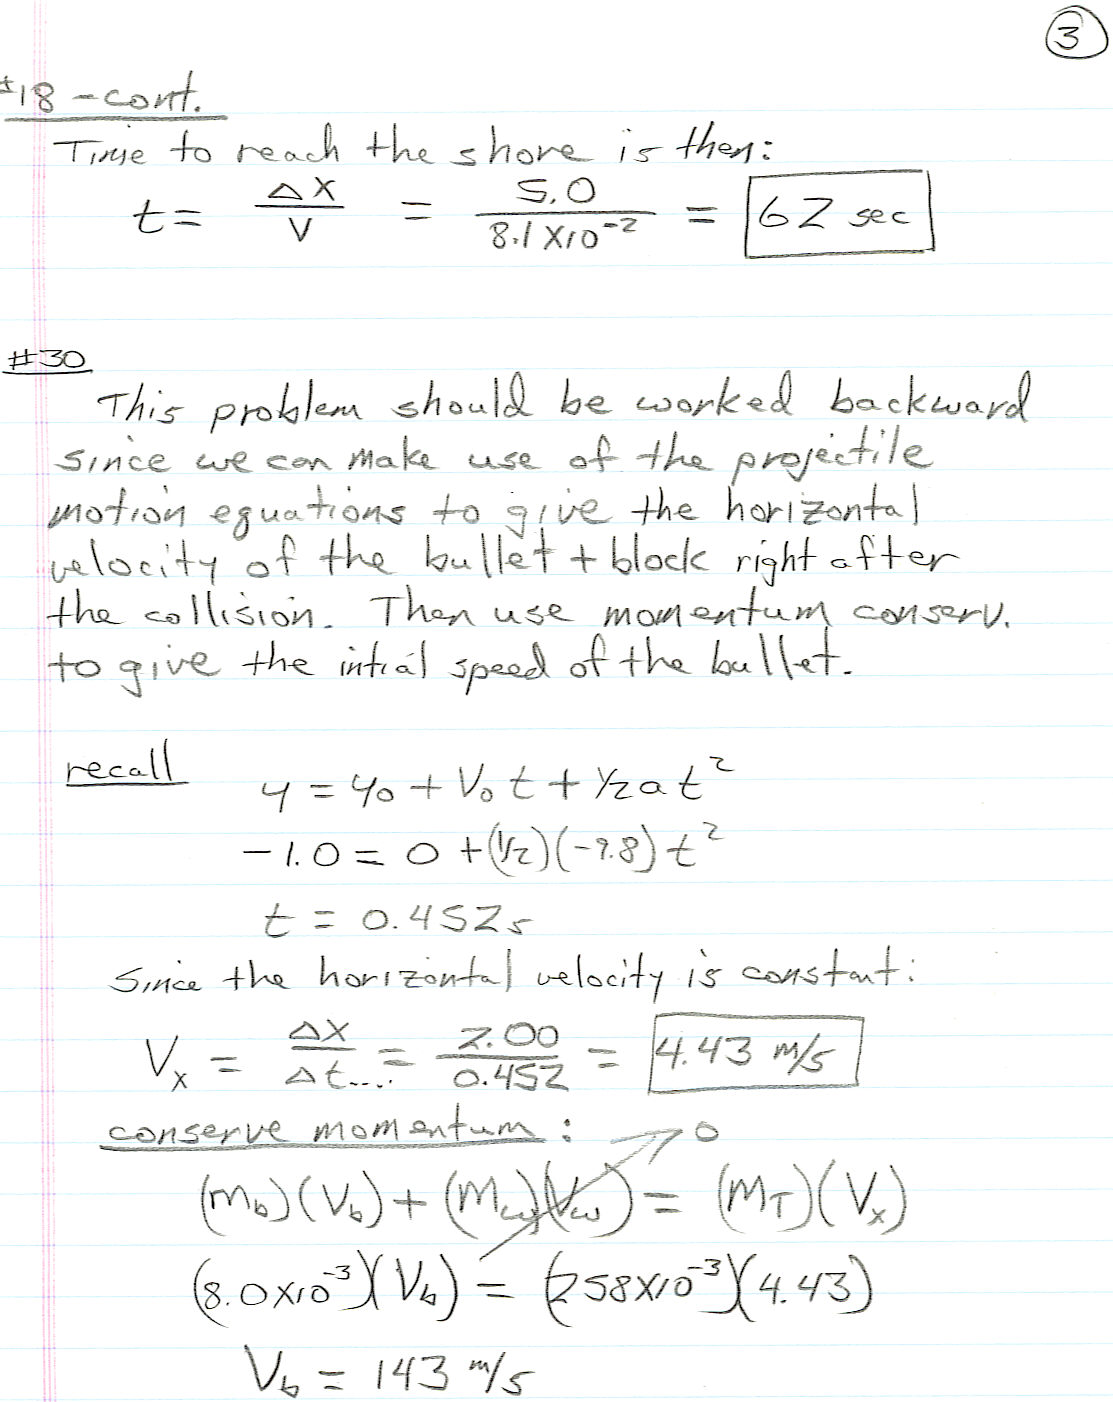 3
#18 - cont.
Time to reach the shore is then:
t = Δx / v = 5.0 / 8.1 x10⁻² = 62 sec
#30
This problem should be worked backward
since we can make use of the projectile
motion equations to give the horizontal
velocity of the bullet + block right after
the collision. Then use momentum conserv.
to give the intial speed of the bullet.
recall
y = y₀ + V₀ t + ½ a t²
-1.0 = 0 + (½)(-9.8) t²
t = 0.452s
Since the horizontal velocity is constant:
Vₓ = Δx / Δt.... = 2.00 / 0.452 = 4.43 m/s
conserve momentum:
(m_b)(V_b) + (M_w)(V_w) → 0 = (M_T)(Vₓ)
(8.0x10⁻³)(V_b) = (258x10⁻³)(4.43)
V_b = 143 m/s